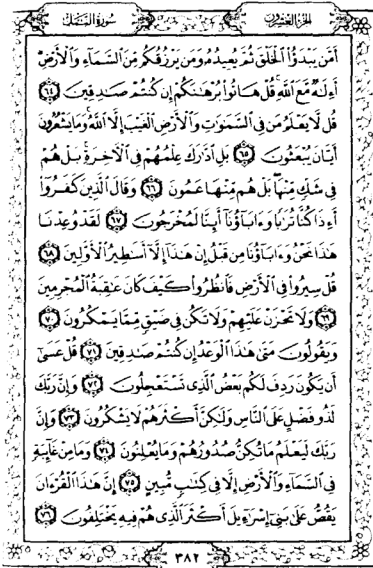 الجزء العشرون
سورة النمل
أَمَّن يَبْدَؤُا۟ ٱلْخَلْقَ ثُمَّ يُعِيدُهُۥ وَمَن يَرْزُقُكُم مِّنَ ٱلسَّمَآءِ وَٱلْأَرْضِ
أَءِلَٰهٌ مَّعَ ٱللَّهِ قُلْ هَاتُوا۟ بُرْهَٰنَكُمْ إِن كُنتُمْ صَٰدِقِينَ ٦٤
قُل لَّا يَعْلَمُ مَن فِى ٱلسَّمَٰوَٰتِ وَٱلْأَرْضِ ٱلْغَيْبَ إِلَّا ٱللَّهُ وَمَا يَشْعُرُونَ
أَيَّانَ يُبْعَثُونَ ٦٥ بَلِ ٱدَّٰرَكَ عِلْمُهُمْ فِى ٱلْءَاخِرَةِ بَلْ هُمْ
فِى شَكٍّ مِّنْهَا بَلْ هُم مِّنْهَا عَمُونَ ٦٦ وَقَالَ ٱلَّذِينَ كَفَرُوٓا۟
أَءِذَا كُنَّا تُرَٰبًا وَءَابَآؤُنَآ أَئِنَّا لَمُخْرَجُونَ ٦٧ لَقَدْ وُعِدْنَا
هَٰذَا نَحْنُ وَءَابَآؤُنَا مِن قَبْلُ إِنْ هَٰذَآ إِلَّآ أَسَٰطِيرُ ٱلْأَوَّلِينَ ٦٨
قُلْ سِيرُوا۟ فِى ٱلْأَرْضِ فَٱنظُرُوا۟ كَيْفَ كَانَ عَٰقِبَةُ ٱلْمُجْرِمِينَ
٦٩ وَلَا تَحْزَنْ عَلَيْهِمْ وَلَا تَكُن فِى ضَيْقٍ مِّمَّا يَمْكُرُونَ ٧٠
وَيَقُولُونَ مَتَىٰ هَٰذَا ٱلْوَعْدُ إِن كُنتُمْ صَٰدِقِينَ ٧١ قُلْ عَسَىٰٓ
أَن يَكُونَ رَدِفَ لَكُم بَعْضُ ٱلَّذِى تَسْتَعْجِلُونَ ٧٢ وَإِنَّ رَبَّكَ
لَذُو فَضْلٍ عَلَى ٱلنَّاسِ وَلَٰكِنَّ أَكْثَرَهُمْ لَا يَشْكُرُونَ ٧٣ وَإِنَّ
رَبَّكَ لَيَعْلَمُ مَا تُكِنُّ صُدُورُهُمْ وَمَا يُعْلِنُونَ ٧٤ وَمَا مِنْ غَآئِبَةٍ
فِى ٱلسَّمَآءِ وَٱلْأَرْضِ إِلَّا فِى كِتَٰبٍ مُّبِينٍ ٧٥ إِنَّ هَٰذَا ٱلْقُرْءَانَ
يَقُصُّ عَلَىٰ بَنِىٓ إِسْرَٰٓءِيلَ أَكْثَرَ ٱلَّذِى هُمْ فِيهِ يَخْتَلِفُونَ ٧٦
٣٨٢